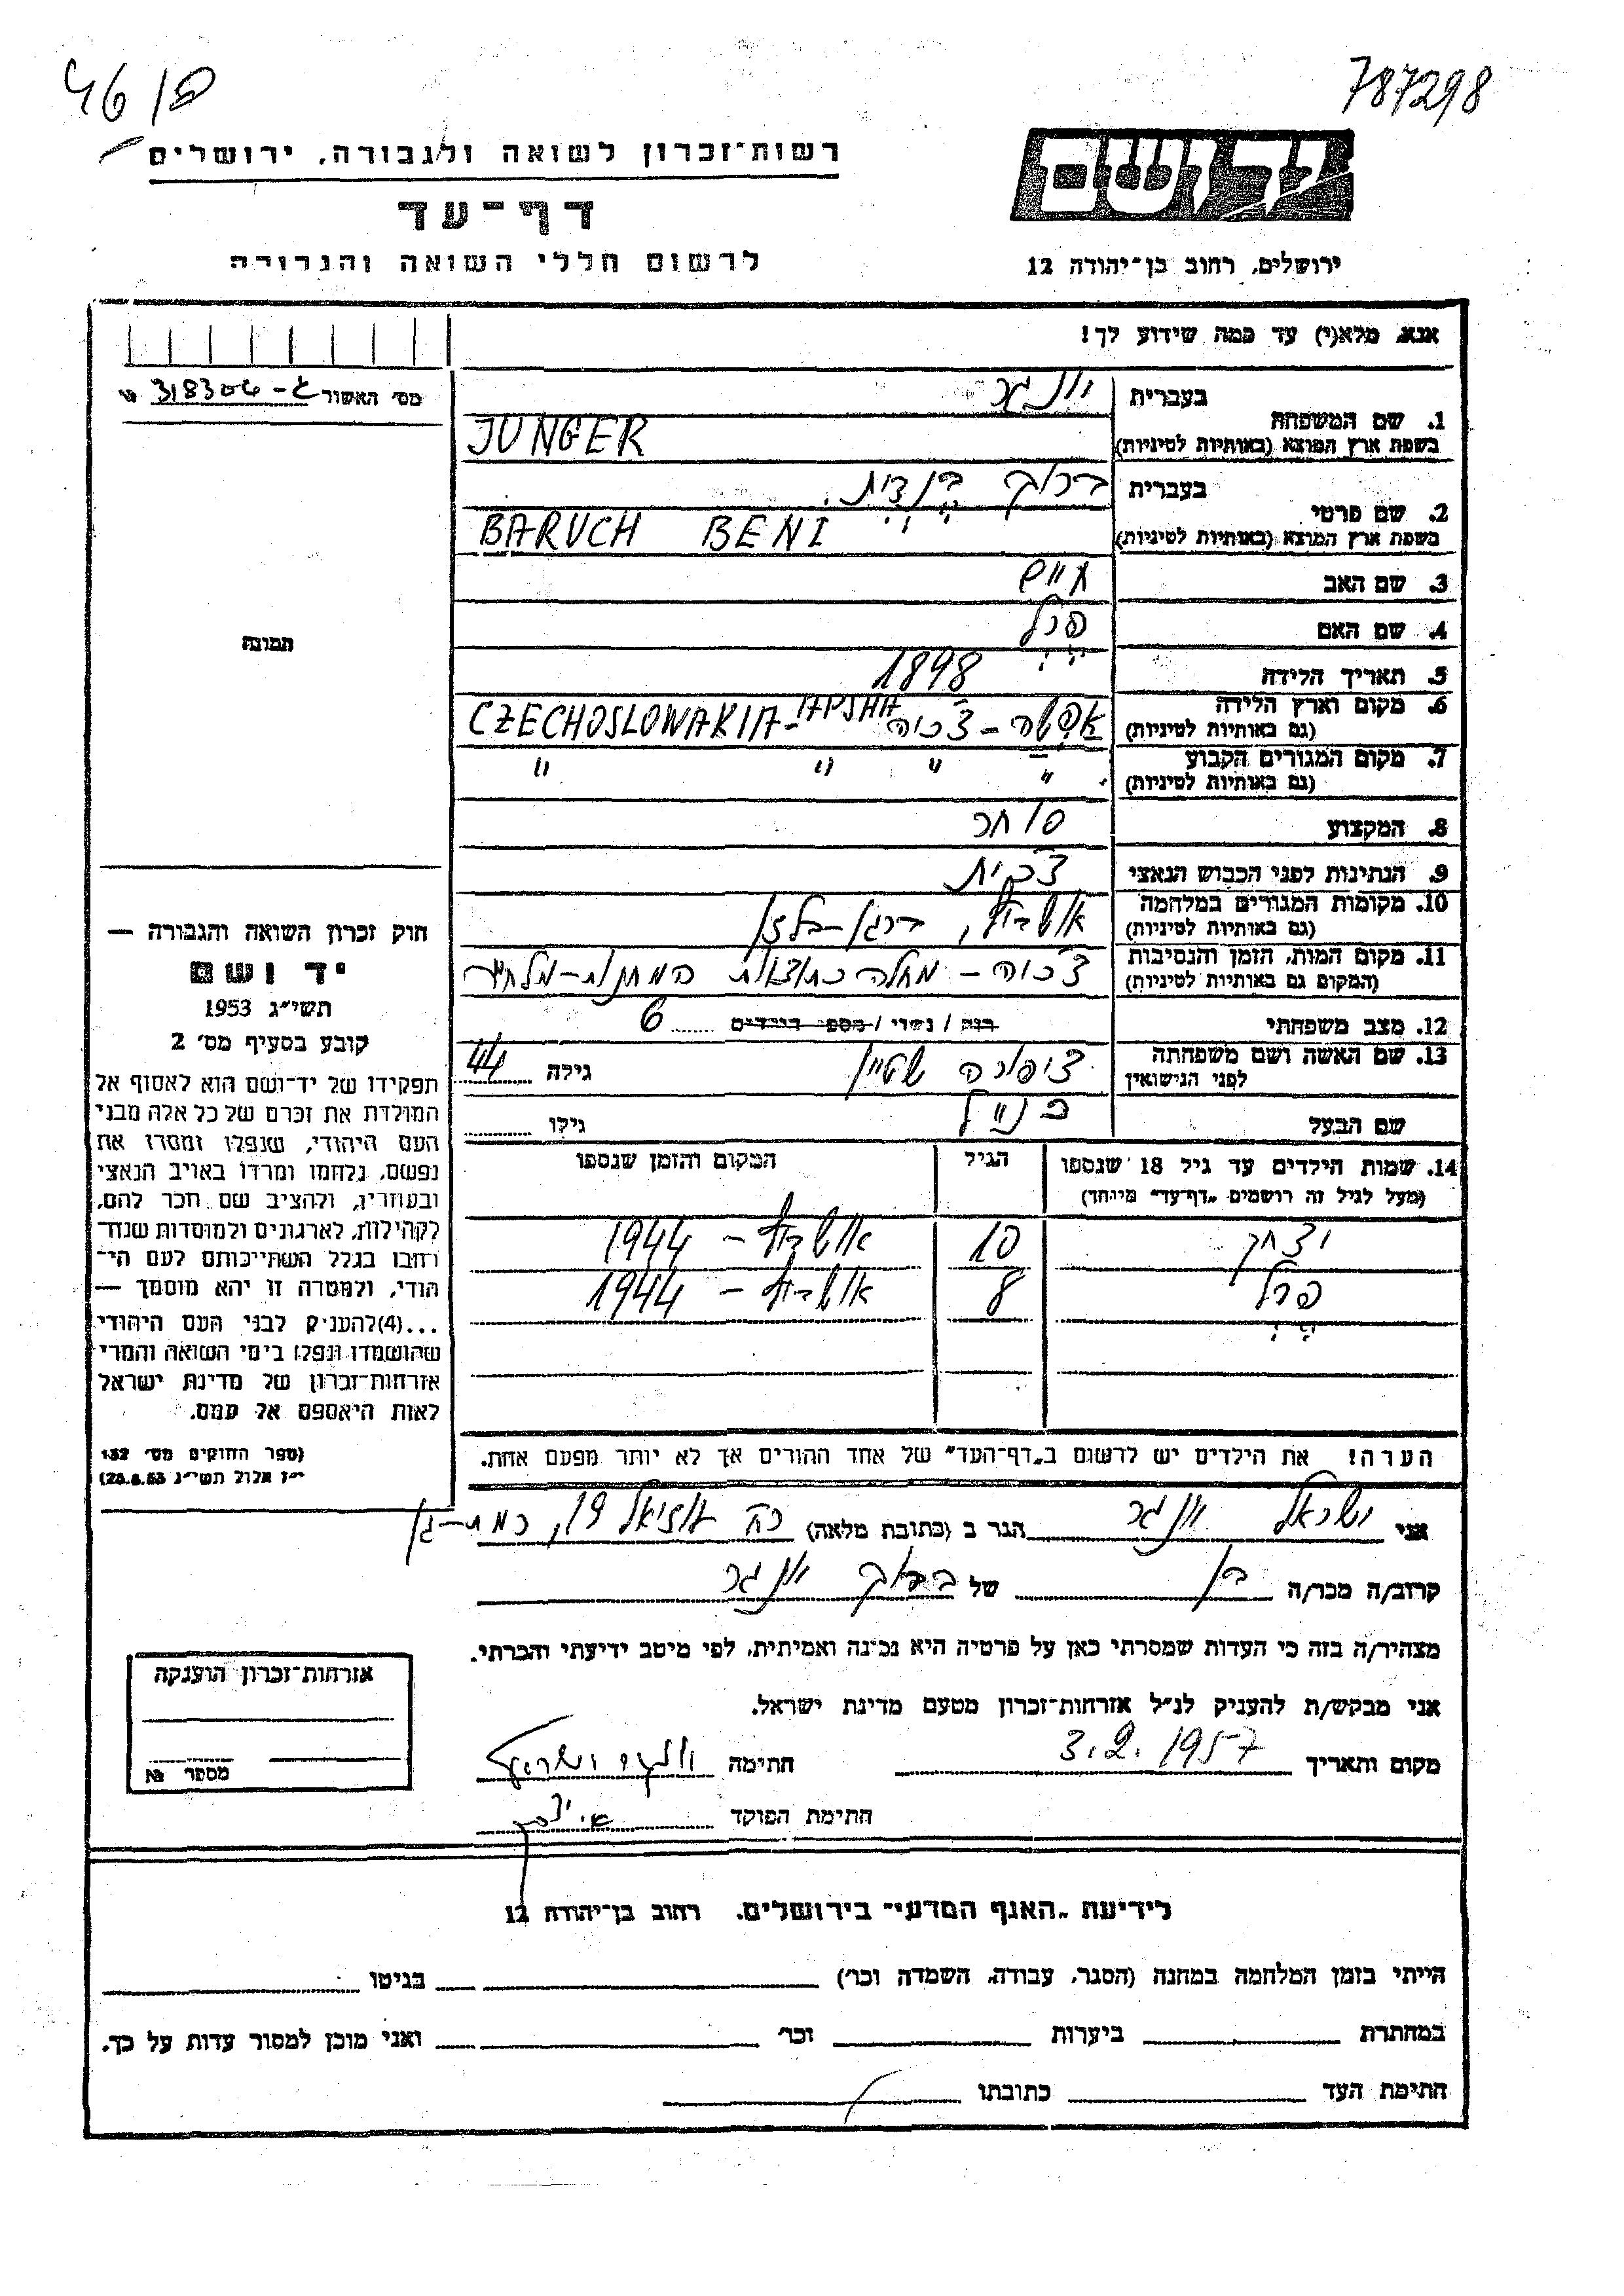 787298
46 / פ
יד ושם
ירושלים, רחוב בן־יהודה 12
רשות־זכרון לשואה ולגבורה, ירושלים
דף־עד
לרשום חללי השואה והגבורה
אנא, מלא(י) עד כמה שידוע לך!
מס׳ האשור ג-318306
תמונה
1. שם המשפחה
בעברית יונגר
בשפת ארץ המוצא (באותיות לטיניות) JUNGER
2. שם פרטי
בעברית ברוך בנדית
בשפת ארץ המוצא (באותיות לטיניות) BARUCH BENI
3. שם האב חיים
4. שם האם פרל
5. תאריך הלידה 1898
6. מקום וארץ הלידה אפשה - צ׳כיה CZECHOSLOWAKIA - IAPSHA
(גם באותיות לטיניות)
7. מקום המגורים הקבוע " " " "
(גם באותיות לטיניות)
8. המקצוע סוחר
9. הנתינות לפני הכבוש הנאצי צ׳כית
10. מקומות המגורים במלחמה אושויץ, ברגן-בלזן
(גם באותיות לטיניות)
11. מקום המות, הזמן והנסיבות צ׳כיה - מחלה כתוצאות המחנות-
(המקום גם באותיות לטיניות)
12. מצב משפחתי רוק / נשוי / מספר הילדים 6
13. שם האשה ושם משפחתה לפני הנישואין ציפורה שטיין גילה 44
שם הבעל כנ״ל גילו
14. שמות הילדים עד גיל 18 שנספו הגיל המקום והזמן שנספו
(מעל לגיל זה רושמים „דף־עד״ מיוחד)
יצחק 10 אושויץ - 1944
פרל 8 אושויץ - 1944
הערה! את הילדים יש לרשום ב„דף־העד״ של אחד ההורים אך לא יותר מפעם אחת.
חוק זכרון השואה והגבורה —
יד ושם
תשי״ג 1953
קובע בסעיף מס׳ 2
תפקידו של יד־ושם הוא לאסוף אל
המולדת את זכרם של כל אלה מבני
העם היהודי, שנפלו ומסרו את
נפשם, נלחמו ומרדו באויב הנאצי
ובעוזריו, ולהציב שם וזכר להם,
לקהילות, לארגונים ולמוסדות שנח־
רבו בגלל השתייכותם לעם הי־
הודי, ולמטרה זו יהא מוסמך —
...(4)להעניק לבני העם היהודי
שהושמדו ונפלו בימי השואה והמרי
אזרחות־זכרון של מדינת ישראל
לאות היאספם אל עמם.
(ספר החוקים מס׳ 132
י״ז אלול תשי״ג 28.8.53)
אני ישראל יונגר הגר ב (כתובת מלאה) רח עוזיאל 19, רמת-גן
קרוב/ה מכר/ה בן של ברוך יונגר
מצהיר/ה בזה כי העדות שמסרתי כאן על פרטיה היא נכונה ואמיתית, לפי מיטב ידיעתי והכרתי.
אני מבקש/ת להעניק לנ״ל אזרחות־זכרון מטעם מדינת ישראל.
מקום ותאריך 3.2.1957 חתימה יונגר ישראל
חתימת הפוקד
אזרחות־זכרון הוענקה
מספר №
לידיעת „האגף המדעי״ בירושלים. רחוב בן־יהודה 12
הייתי בזמן המלחמה במחנה (הסגר, עבודה, השמדה וכר׳) בגיטו
במחתרת ביערות וכר׳ ואני מוכן למסור עדות על כך.
חתימת העד כתובתו